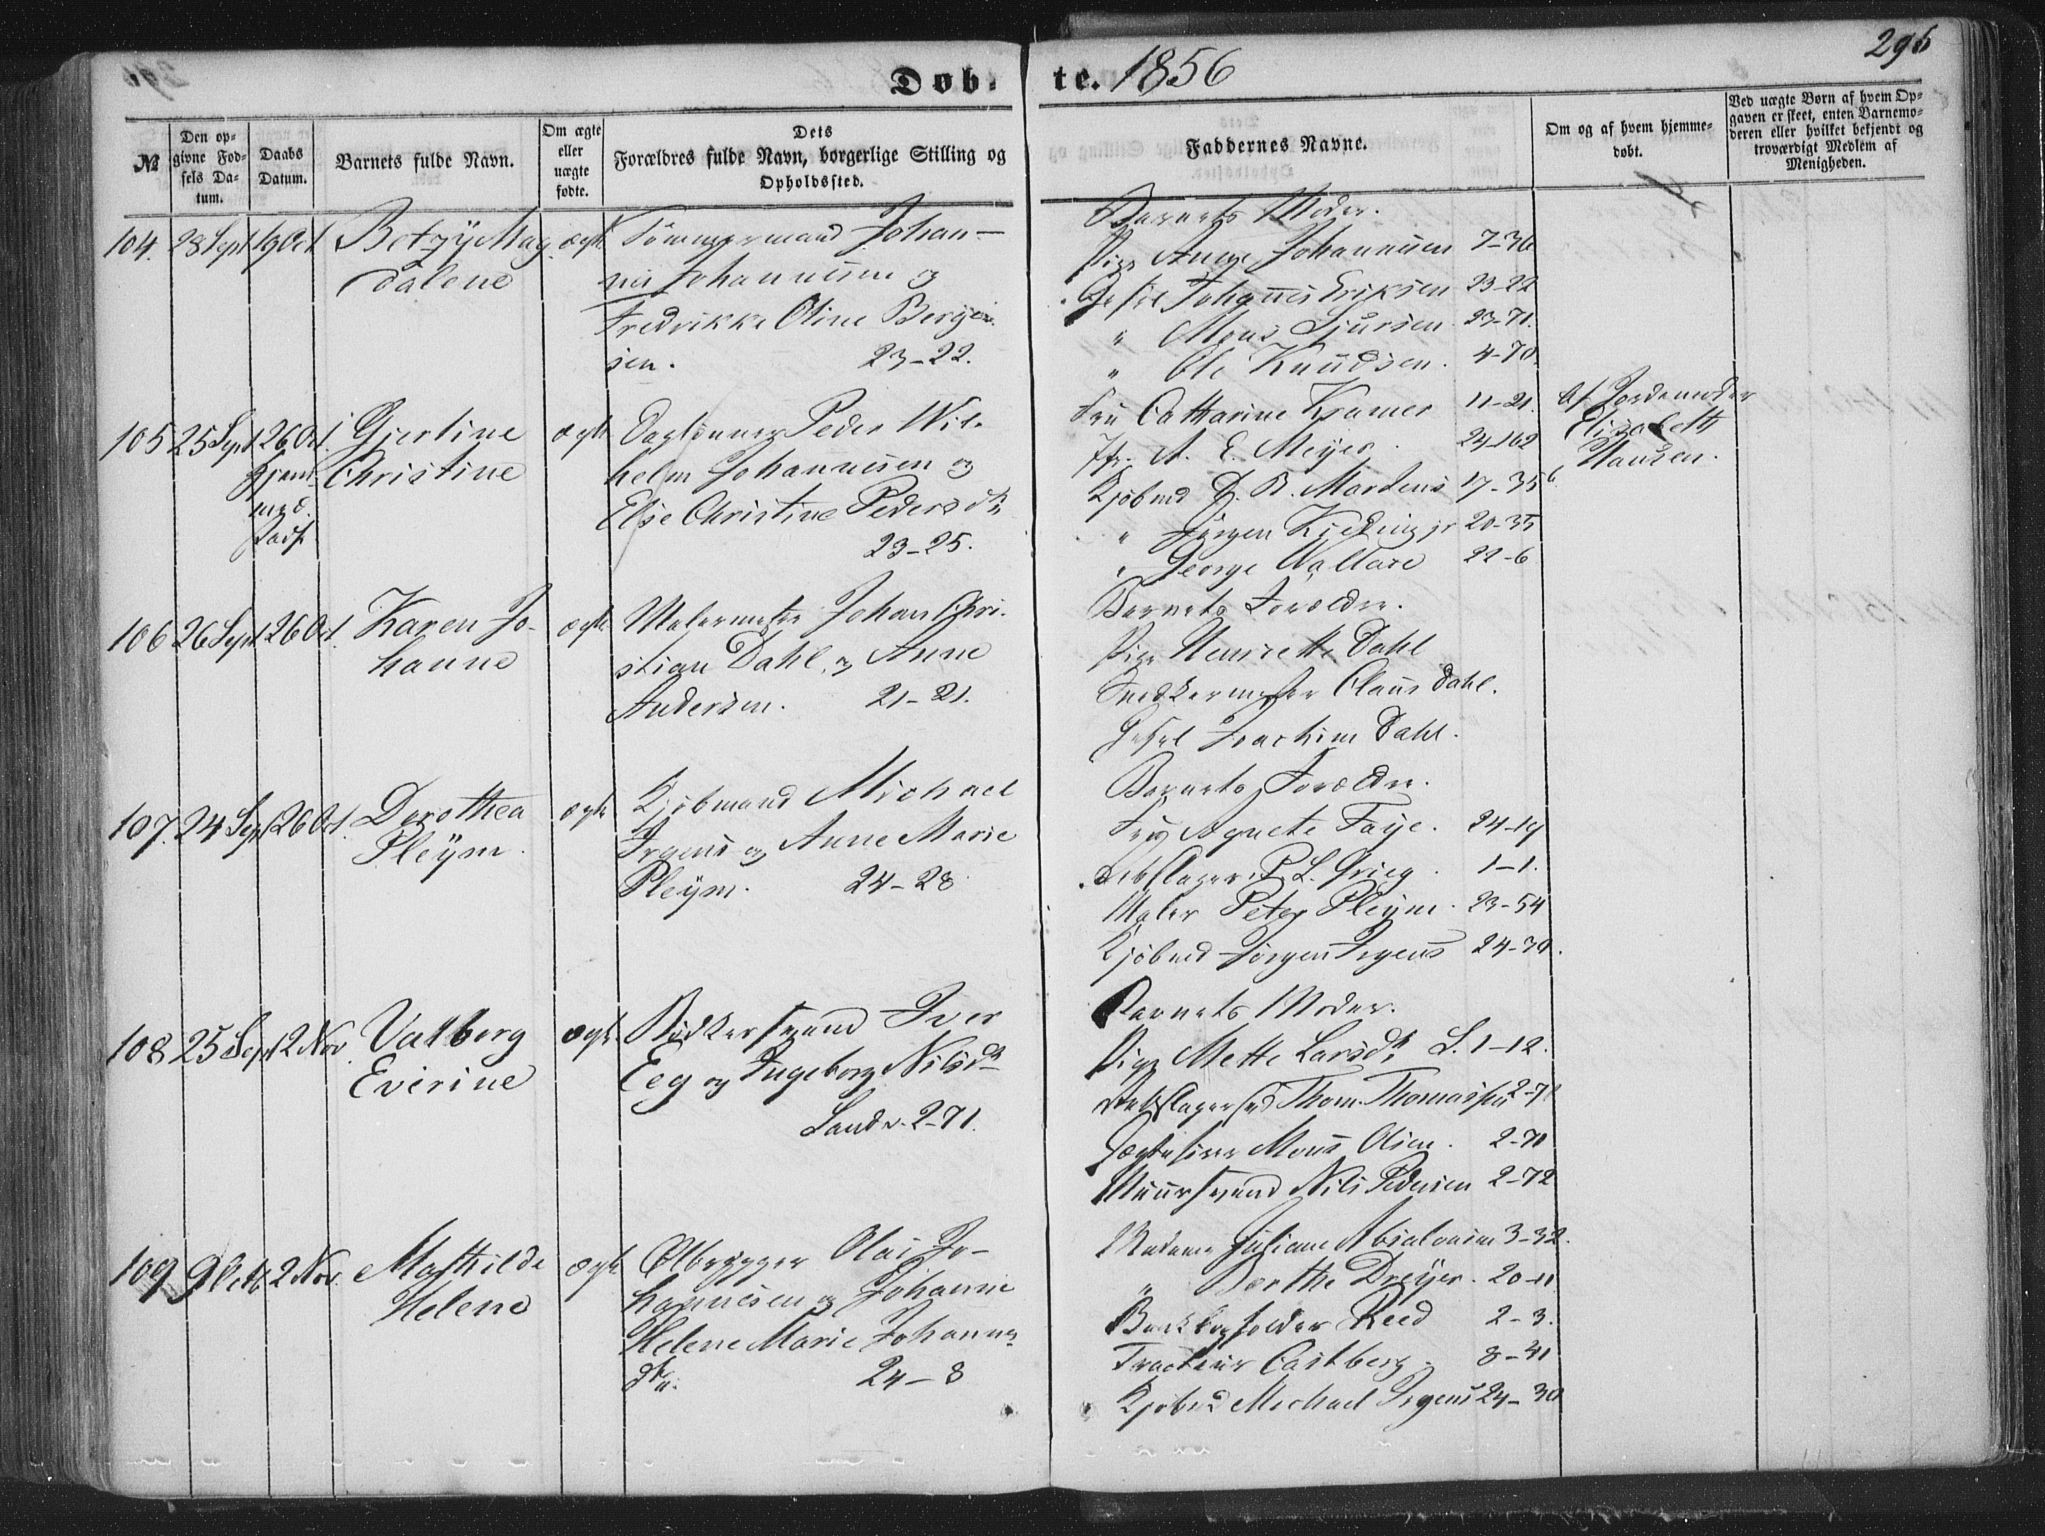 295
Døb- te. 1856
№
Den opgivne Fødsels Datum.
Daabs Datum.
Barnets fulde Navn.
Om ægte eller uægte fødte.
Dets Forældres fulde Navn, borgerlige Stilling og Opholdssted.
Faddernes Navne.
Om og af hvem hjemmedøbt.
Ved uægte Børn af hvem Opgaven er skeet, enten Barnemoderen eller hvilket bekjendt og troværdigt Medlem af Menigheden.
104. 28 Sept 19 Oct Betzy Mag ægte Tømmermand Johan-
dalene nis Johannesen og
Fredrikke Oline Berge
sen. 23-22.
Barnets Moder.
Pige Anne Johannesen 7-36
Johannes Eriksen 23-22
" Mons Sjursen 23-71.
" Ole Knudsen. 4-70.
105 25 Sept 26 Oct. Gjertine ægte Dagleunner Peder Wil-
Christine helm Johannesen og
Else Christine Pedersdt
23-25.
Fru Catharine Kramer 11-21.
Jfr. A. E. Meyer. 24-162
Kjøbmd D. B. Martens 17-35
" Jørgen 20-35
" George Wallace 22-6
Af Jordemoder
Elisabeth
Hansen.
106 26 Sept 26 Oct. Karen Jo- ægte Malermester Johan Chri-
hanne stian Dahl og Anne
Andersen. 21-21.
Barnets Forældre.
Pige Henriette Dahl
Snedkermester Claus Dahl.
Joachim Dahl.
107. 24 Sept 26 Oct. Dorothea ægte Kjøbmand Michael
Pleym. Irgens og Anne Marie
Pleym. 24-28
Barnets Forældre.
Agnete Faye. 24-19
P. L. Grieg. 1-1.
Maler Peter Pleym. 23-54
Kjøbmd Jørgen Irgens 24-30.
108 25 Sept 2 Nov Valborg ægte Bødkersvend Iver
Everine Eeg og Ingeborg Nilsdt
Sandv. 2-71.
Barnets Moder.
Pige Mette Larsdt S. 1-12.
Thom. Thomassen 2-71
Mons Olsen. 2-70
Muursvend Nils Pedersen 2-72
109 9 Octb 2 Nov. Mathilde ægte Ølbrygger Olai Jo-
Helene hannesen og Johanne
Helene Marie Johannes
dtr. 24-8
Madame Juliane Absalonsen 3-32.
" Berthe Dreyer. 20-11
Bankbogholder Reed 2-3.
Tracteur Castberg. 8-41
Kjøbmd Michael Irgens 24-30